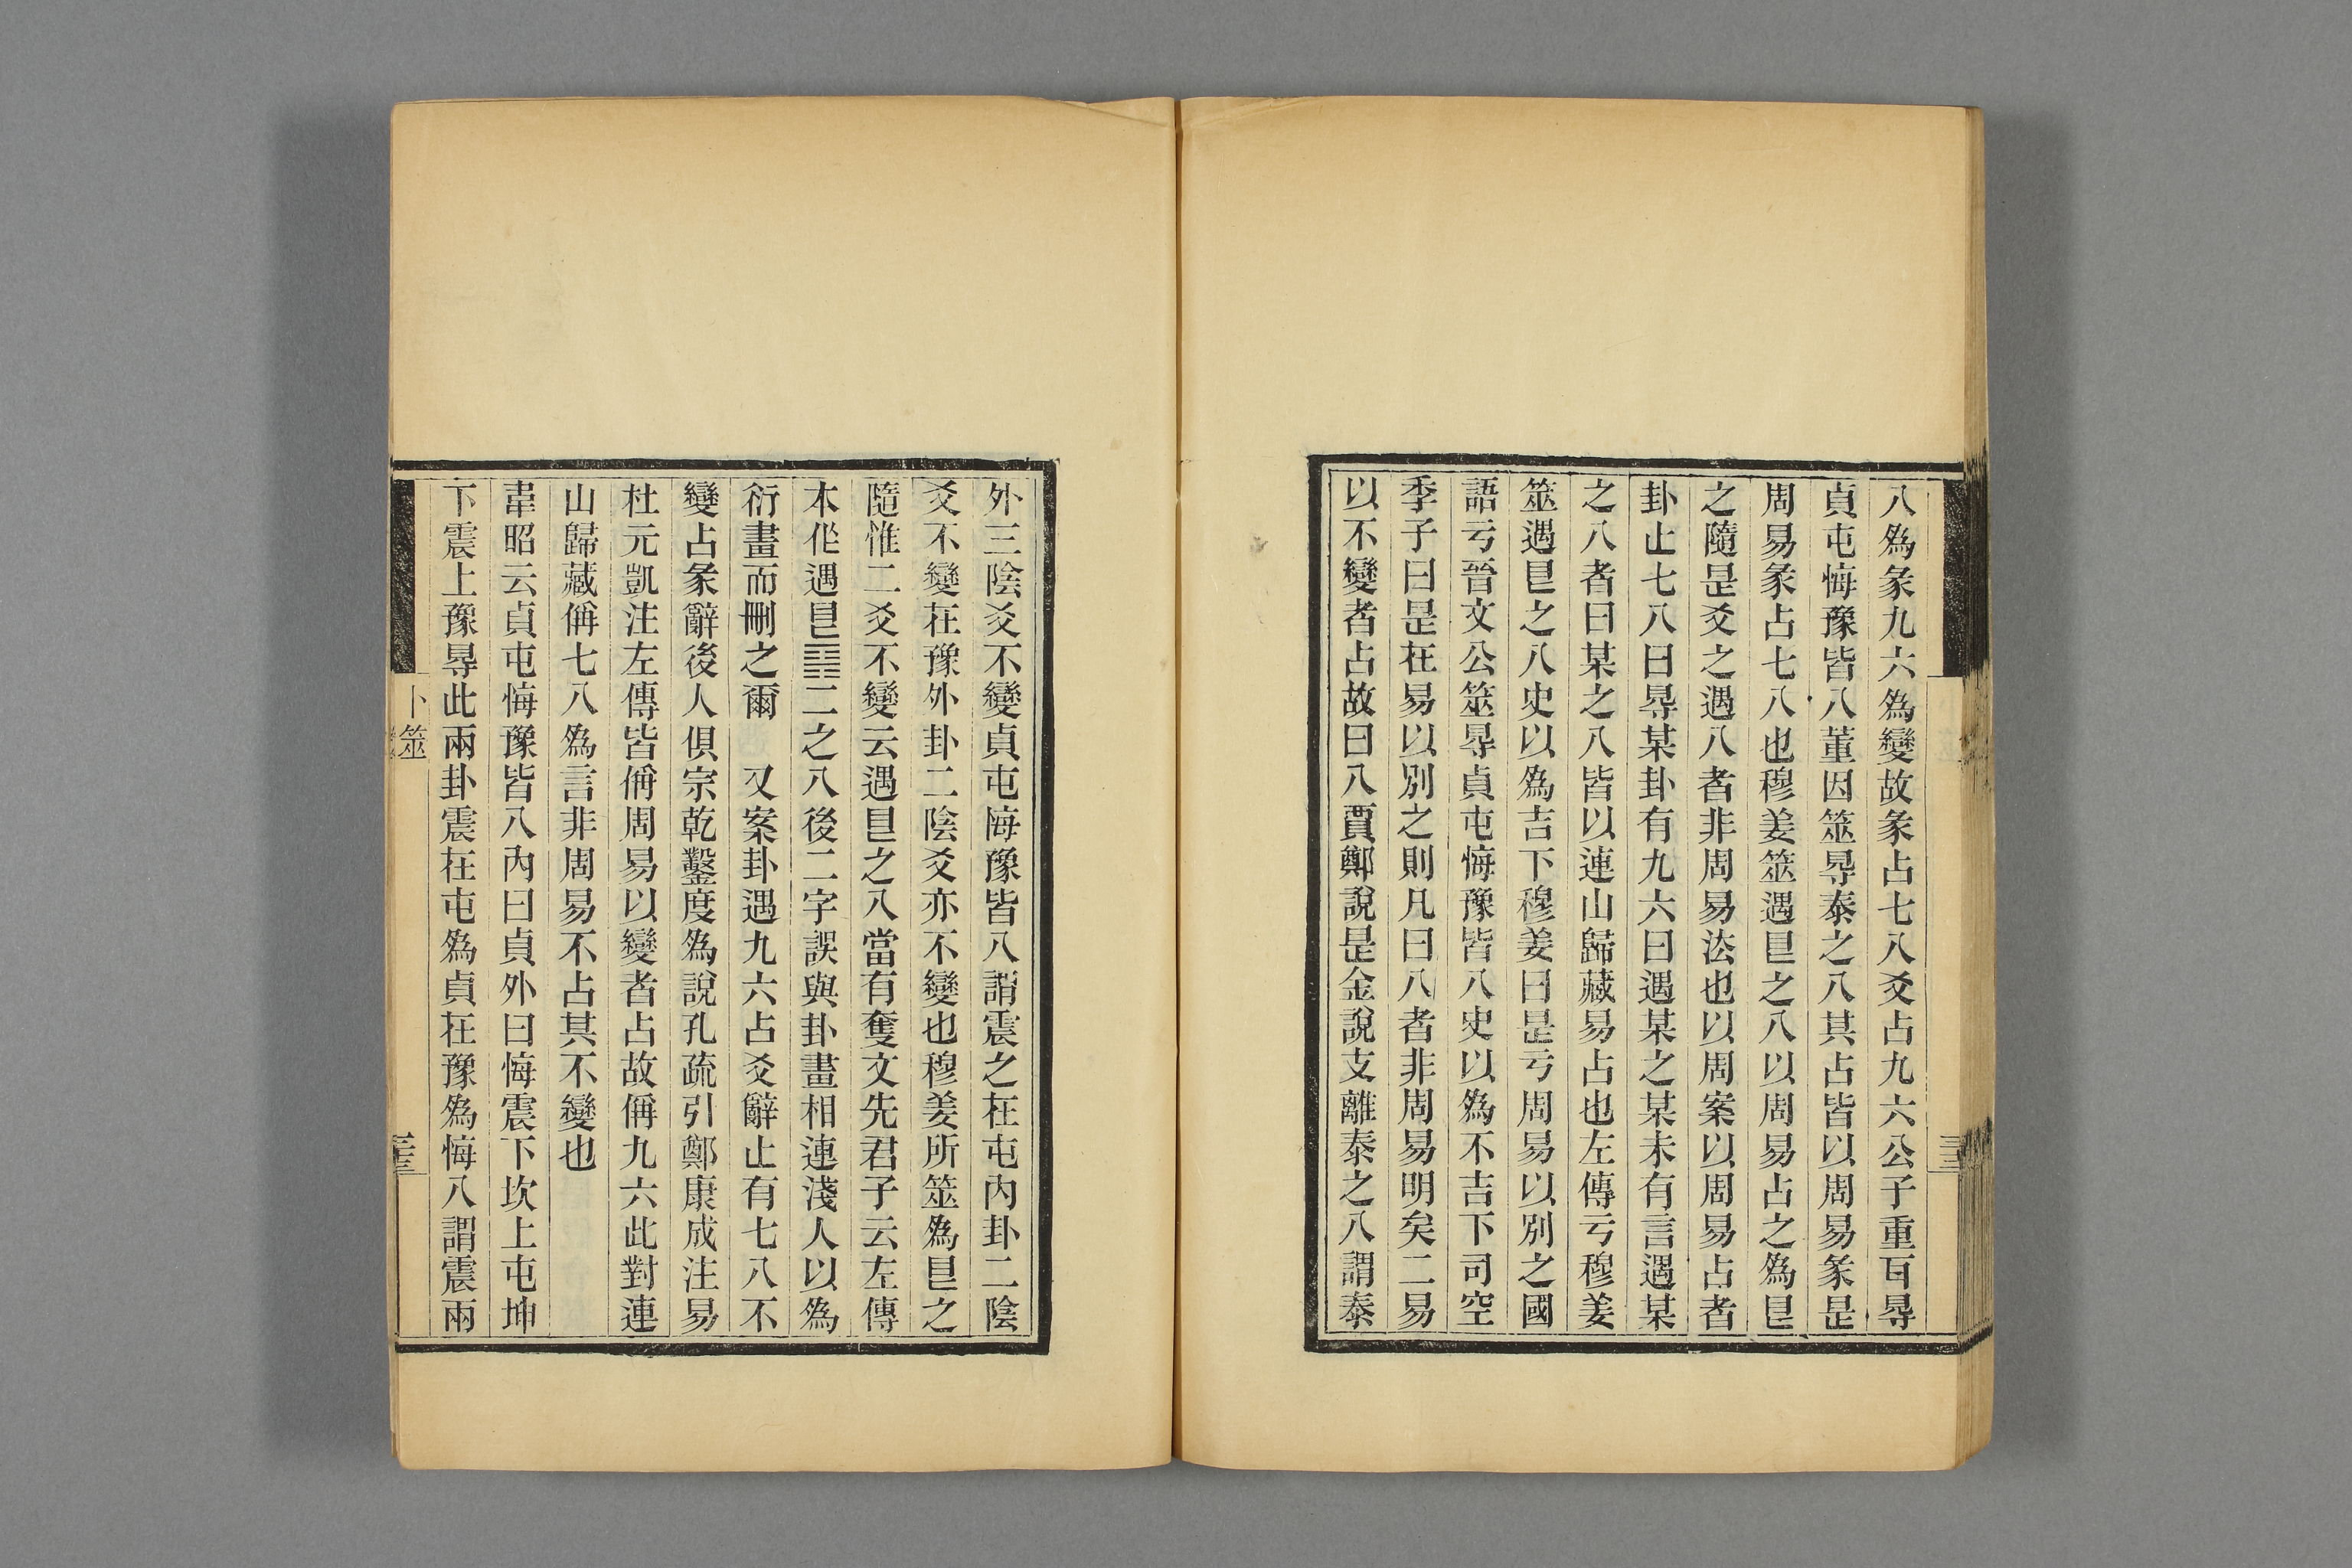 八爲彖九六爲變故彖占七八爻占九六公子重耳㝵
貞屯悔豫皆八董因筮㝵泰之八其占皆以周易彖是
周易彖占七八也穆姜筮遇艮之八以周易占之爲艮
之隨是爻之遇八者非周易法也以周案以周易占者
卦止七八曰㝵某卦有九六曰遇某之某未有言遇某
之八者曰某之八皆以連山歸藏易占也左傳亏穆姜
筮遇艮之八史以爲吉下穆姜曰是亏周易以別之國
語亏晉文公筮㝵貞屯悔豫皆八史以爲不吉下司空
季子曰是在易以別之則凡曰八者非周易明矣二易
以不變者占故曰八賈鄭說是金說支離泰之八謂泰
外三陰爻不變貞屯悔豫皆八謂震之在屯內卦二陰
爻不變在豫外卦二陰爻亦不變也穆姜所筮爲艮之
隨惟二爻不變云遇艮之八當有奪文先君子云左傳
本作遇艮䷳二之八後二字誤與卦畫相連淺人以爲
衍畫而刪之爾　又案卦遇九六占爻辭止有七八不
變占彖辭後人俱宗乾鑿度爲說孔疏引鄭康成注易
杜元凱注左傳皆偁周易以變者占故偁九六此對連
山歸藏偁七八爲言非周易不占其不變也
韋昭云貞屯悔豫皆八內曰貞外曰悔震下坎上屯坤
下震上豫㝵此兩卦震在屯爲貞在豫爲悔八謂震兩
卜筮